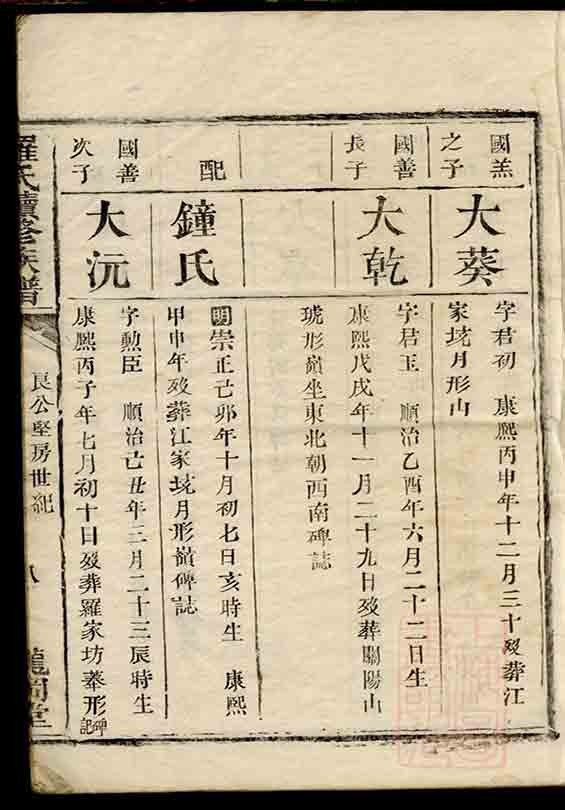 國羔
之子
大葵
字君初 康熙丙申年十二月三十歿葬江
家坑月形山
國善
長子
大乾
字君玉 順治乙酉年六月二十二日生
康熙戊戌年十一月二十九日歿葬關陽山
琥形嶺坐東北朝西南碑誌
配
鐘氏
明崇正己卯年十月初七日亥時生 康熙
甲申年歿葬江家坑月形嶺碑誌
國善
次子
大沅
字勲臣 順治己丑年三月二十三辰時生
康熙丙子年七月初十日歿葬羅家坊菶形碑記
羅氏續修族譜
良公堅房世紀
八
堂